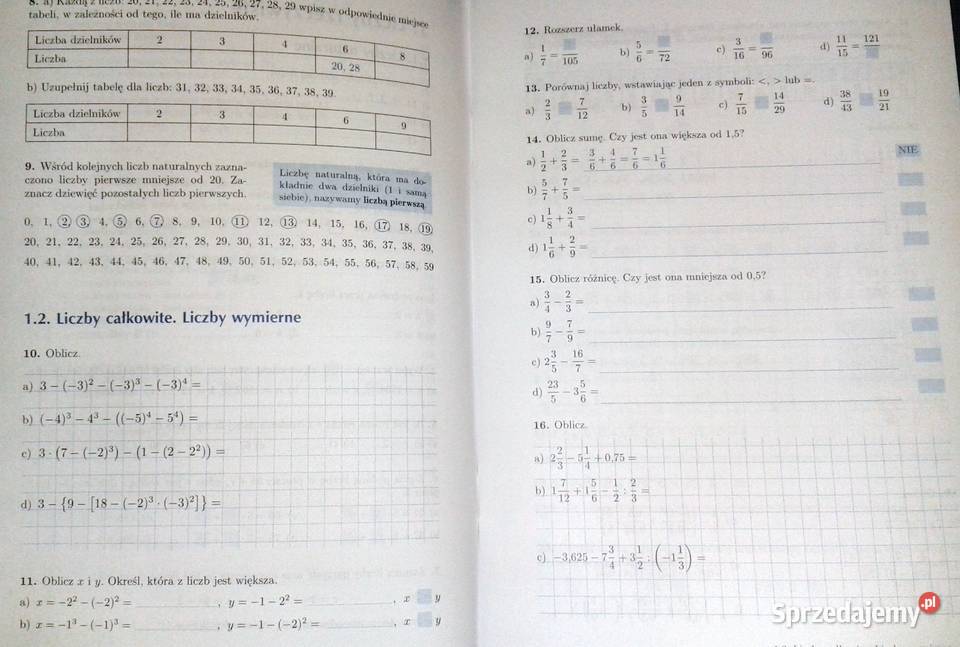 8. a) Każdą z liczb: 20, 21, 22, 23, 24, 25, 26, 27, 28, 29 wpisz w odpowiednie miejsce
tabeli, w zależności od tego, ile ma dzielników.
Liczba dzielników 2 3 4 6 8
Liczba 20, 28
b) Uzupełnij tabelę dla liczb: 31, 32, 33, 34, 35, 36, 37, 38, 39.
Liczba dzielników 2 3 4 6 9
Liczba
9. Wśród kolejnych liczb naturalnych zazna-
czono liczby pierwsze mniejsze od 20. Za-
znacz dziewięć pozostałych liczb pierwszych.
Liczbę naturalną, która ma do-
kładnie dwa dzielniki (1 i samą
siebie), nazywamy liczbą pierwszą.
0, 1, 2, 3, 4, 5, 6, 7, 8, 9, 10, 11, 12, 13, 14, 15, 16, 17, 18, 19,
20, 21, 22, 23, 24, 25, 26, 27, 28, 29, 30, 31, 32, 33, 34, 35, 36, 37, 38, 39,
40, 41, 42, 43, 44, 45, 46, 47, 48, 49, 50, 51, 52, 53, 54, 55, 56, 57, 58, 59
1.2. Liczby całkowite. Liczby wymierne
10. Oblicz.
a) 3 − (−3)² − (−3)³ − (−3)⁴ =
b) (−4)³ − 4³ − ((−5)⁴ − 5⁴) =
c) 3 · (7 − (−2)³) − (1 − (2 − 2²)) =
d) 3 − {9 − [18 − (−2)³ · (−3)²]} =
11. Oblicz x i y. Określ, która z liczb jest większa.
a) x = −2² − (−2)² = , y = −1 − 2² = , x y
b) x = −1³ − (−1)³ = , y = −1 − (−2)² = , x y
12. Rozszerz ułamek.
a) 1/7 = /105 b) 5/6 = /72 c) 3/16 = /96 d) 11/15 = 121/
13. Porównaj liczby, wstawiając jeden z symboli: <, > lub =.
a) 2/3 7/12 b) 3/5 9/14 c) 7/15 14/29 d) 38/43 19/21
14. Oblicz sumę. Czy jest ona większa od 1,5?
a) 1/2 + 2/3 = 3/6 + 4/6 = 7/6 = 1 1/6 NIE
b) 5/7 + 7/5 =
c) 1 1/8 + 3/4 =
d) 1 1/6 + 2/9 =
15. Oblicz różnicę. Czy jest ona mniejsza od 0,5?
a) 3/4 − 2/3 =
b) 9/7 − 7/9 =
c) 2 3/5 − 16/7 =
d) 23/5 − 3 5/6 =
16. Oblicz.
a) 2 2/3 − 5 1/4 + 0,75 =
b) 1 7/12 + 1 5/6 − 1/2 : 2/3 =
c) −3,625 − 7 3/4 + 3 1/2 : (−1 1/3) =
Sprzedajemy.pl